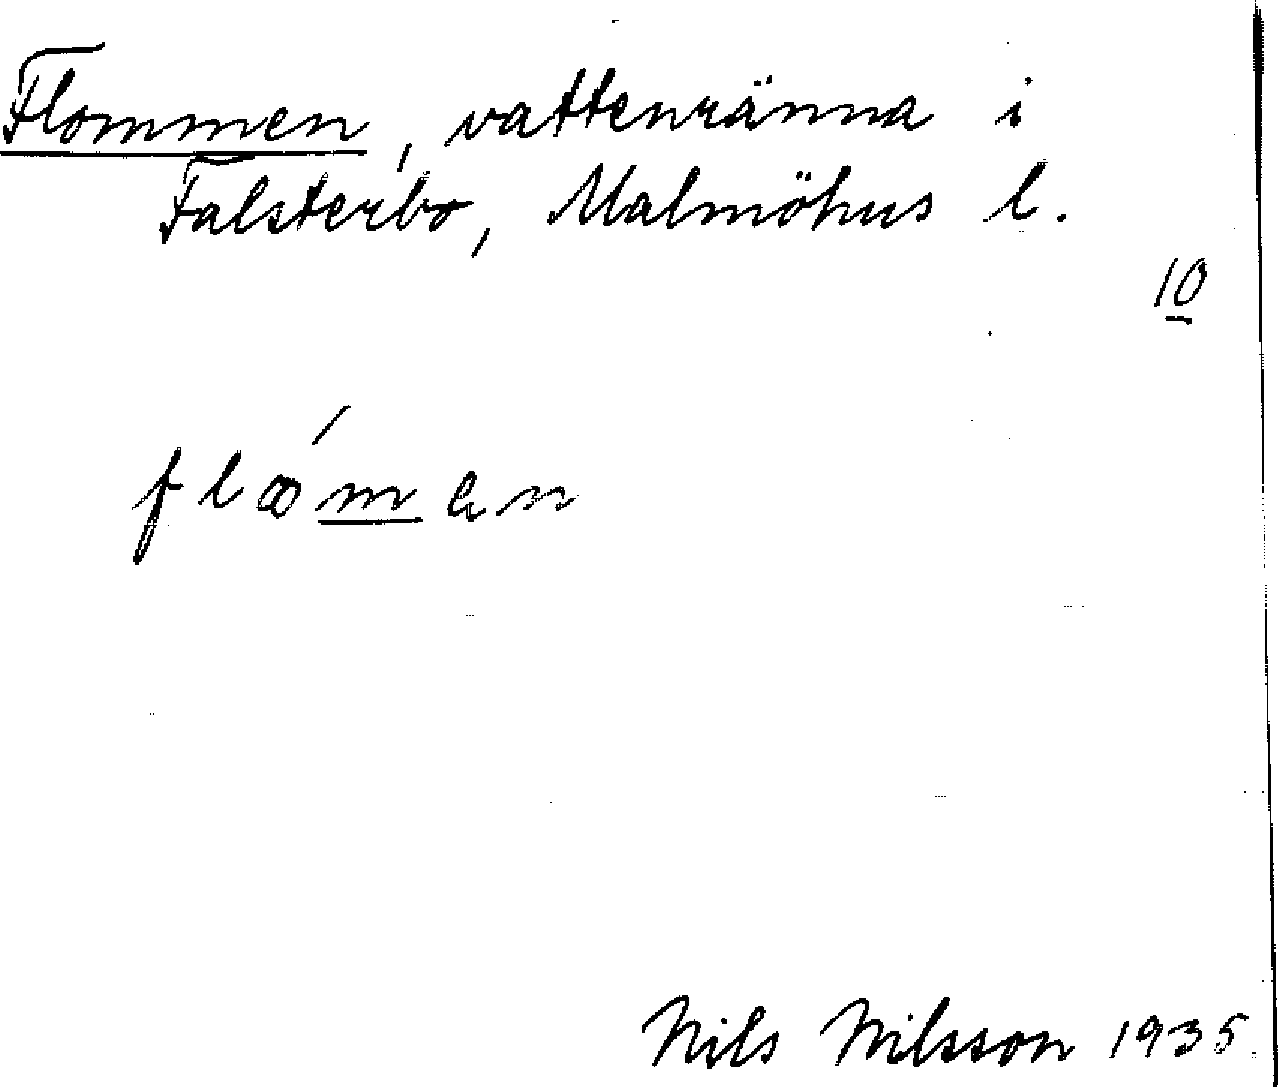 Flommen, vattenränna i
Falsterbo, Malmöhus l.
10
Nils Nilsson 1935.